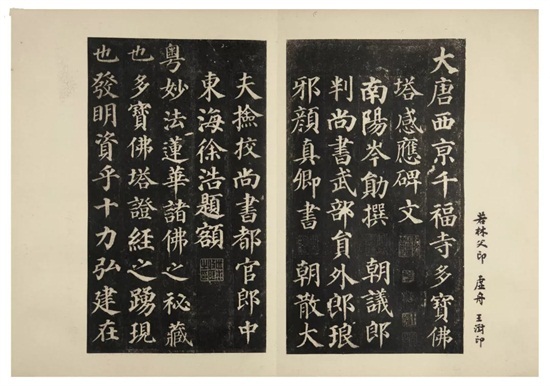 若林父印 虛舟 王澍印
大唐西亰千福寺多寶佛
塔感應碑文
南陽岑勛撰 朝議郎
判尚書武部貟外郎琅
邪顏真卿書 朝散大
夫撿挍尚書都官郎中
東海徐浩題額
粵妙法蓮華諸佛之秘藏
也多寶佛塔證經之踴現
也發明資乎十力弘建在